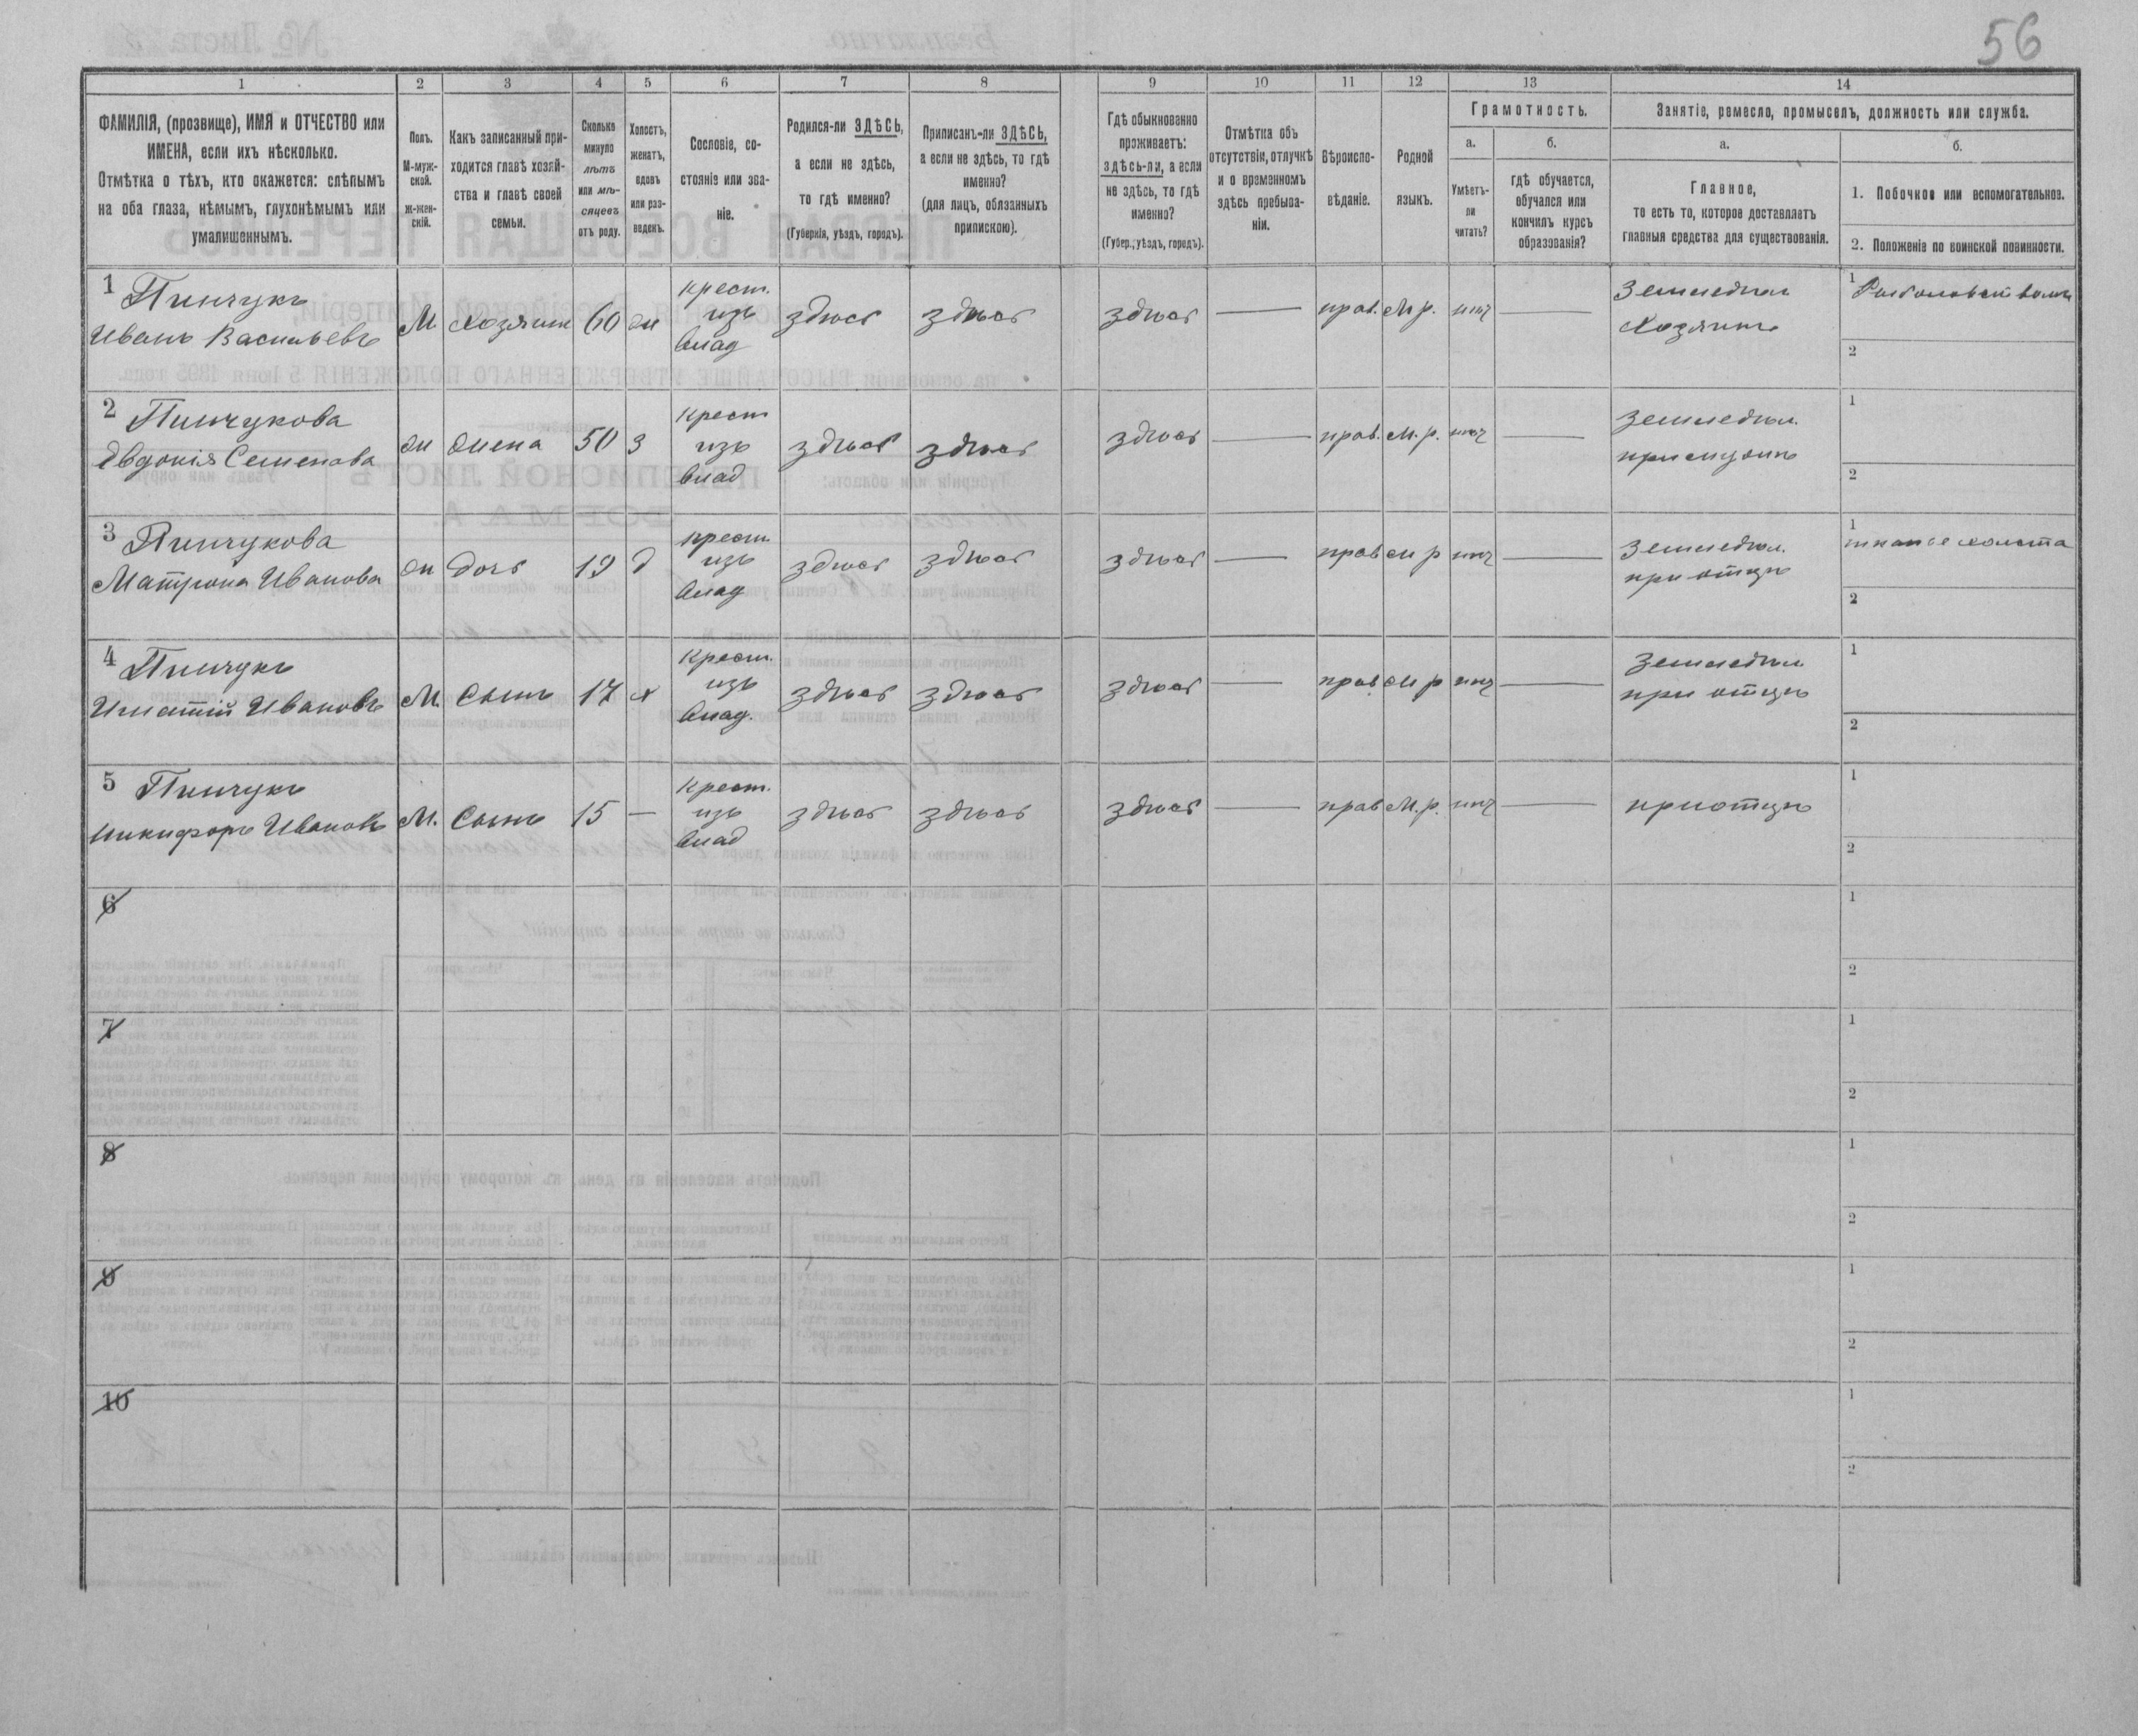 56
1 2 3 4 5 6 7 8 9 10 11 12 13 14
ФАМИЛІЯ, (прозвище), ИМЯ и ОТЧЕСТВО или
ИМЕНА, если ихъ нѣсколько.
Отмѣтка о тѣхъ, кто окажется: слѣпымъ
на оба глаза, нѣмымъ, глухонѣмымъ или
умалишеннымъ.
Полъ.
М-муж-
ской.
Ж-жен-
скій.
Какъ записанный при-
ходится главѣ хозяй-
ства и главѣ своей
семьи.
Сколько
минуло
лѣтъ
или мѣ-
сяцевъ
отъ роду.
Холостъ,
женатъ,
вдовъ
или раз-
веденъ.
Сословіе, со-
стояніе или зва-
ніе.
Родился-ли ЗДѢСЬ,
а если не здѣсь,
то гдѣ именно?
(Губернія, уѣздъ, городъ).
Приписанъ-ли ЗДѢСЬ,
а если не здѣсь, то гдѣ
именно?
(для лицъ, обязанныхъ
припискою).
Гдѣ обыкновенно
проживаетъ:
здѣсь-ли, а если
не здѣсь, то гдѣ
именно?
(Губер., уѣздъ, городъ).
Отмѣтка объ
отсутствіи, отлучкѣ
и о временномъ
здѣсь пребыва-
ніи.
Вѣроиспо-
вѣданіе.
Родной
языкъ.
Грамотность.
а.
Умѣетъ-
ли
читать?
б.
гдѣ обучается,
обучался или
кончилъ курсъ
образованія?
Занятіе, ремесло, промыселъ, должность или служба.
а.
Главное,
то есть то, которое доставляетъ
главныя средства для существованія.
б.
1. Побочное или вспомогательное.
2. Положеніе по воинской повинности.
1 Пинчукъ
Иванъ Васильевъ
М
хозяинъ
60
ж
крест.
изъ
влад
здѣсь
здѣсь
здѣсь
—
прав.
М р.
нѣт
—
Земледѣл
хозяинъ
1
2
2 Пинчукова
Евдокія Семенова
ж
жена
50
з
крест
изъ
влад
здѣсь
здѣсь
здѣсь
—
прав.
М. р.
нѣт
—
земледѣл.
при мужѣ
1
2
3 Пинчукова
Матрона Иванова
ж
дочь
19
д
крест
изъ
влад
здѣсь
здѣсь
здѣсь
—
прав
м р
нѣт
—
земледѣл.
при отцѣ
1
тканье холста
2
4 Пинчукъ
Игнатій Ивановъ
М.
Сынъ
17
х
крест.
изъ
влад.
здѣсь
здѣсь
здѣсь
—
прав
м р
нѣт
—
земледѣл
при отцѣ
1
2
5 Пинчукъ
Никифоръ Ивановъ
М.
Сынъ
15
—
крест.
изъ
влад
здѣсь
здѣсь
здѣсь
—
прав
М. р.
нѣт
—
при отцѣ
1
2
6
1
2
7
1
2
8
1
2
9
1
2
10
1
2